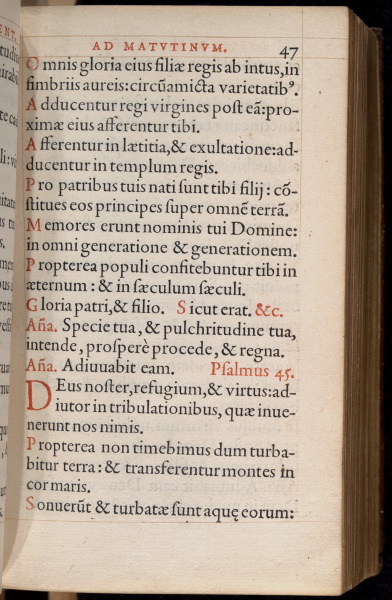 AD MATVTINVM. 47
Omnis gloria eius filiæ regis ab intus, in
fimbriis aureis: circũamicta varietatibꝰ.
Adducentur regi virgines poſt eã: pro-
ximæ eius afferentur tibi.
Afferentur in lætitia, & exultatione: ad-
ducentur in templum regis.
Pro patribus tuis nati ſunt tibi filij: cõ-
ſtitues eos principes ſuper omnẽ terrã.
Memores erunt nominis tui Domine:
in omni generatione & generationem.
Propterea populi confitebuntur tibi in
æternum: & in ſæculum ſæculi.
Gloria patri, & filio. Sicut erat. &c.
Aña. Specie tua, & pulchritudine tua,
intende, proſperè procede, & regna.
Aña. Adiuuabit eam. Pſalmus 45.
DEus noſter, refugium, & virtus: ad-
iutor in tribulationibus, quæ inue-
nerunt nos nimis.
Propterea non timebimus dum turba-
bitur terra: & transferentur montes in
cor maris.
Sonuerũt & turbatæ ſunt aquę eorum: